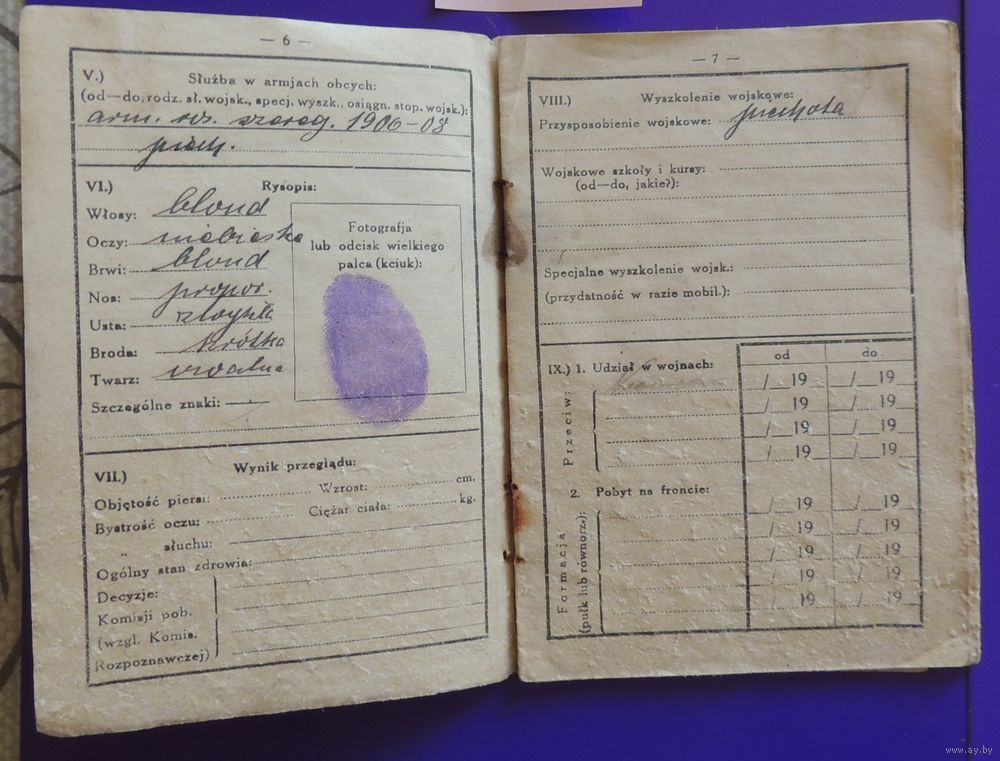 — 6 —
V.) Służba w armjach obcych:
(od—do, rodz. sł. wojsk., specj. wyszk., osiągn. stop. wojsk.):
arm. ros. szereg. 1906–08
piech.
VI.) Rysopis:
Włosy: blond
Oczy: niebieskie
Brwi: blond
Nos: propor.
Usta: zwykłe
Broda: krótka
Twarz: owalna
Szczególne znaki: —
Fotografja
lub odcisk wielkiego
palca (kciuk):
VII.) Wynik przeglądu:
Objętość piersi: Wzrost: cm.
Bystrość oczu: Ciężar ciała: kg.
„ słuchu:
Ogólny stan zdrowia:
Decyzje:
Komisji pob.
(wzgl. Komis.
Rozpoznawczej)
— 7 —
VIII.) Wyszkolenie wojskowe:
Przysposobienie wojskowe: piechota
Wojskowe szkoły i kursy:
(od—do, jakie?):
Specjalne wyszkolenie wojsk.:
(przydatność w razie mobil.):
IX.) 1. Udział w wojnach: od do
Przeciw:
/ 19 / 19
/ 19 / 19
/ 19 / 19
/ 19 / 19
2. Pobyt na froncie:
Formacja
(pułk lub równorz.):
/ 19 / 19
/ 19 / 19
/ 19 / 19
/ 19 / 19
/ 19 / 19
www.ay.by